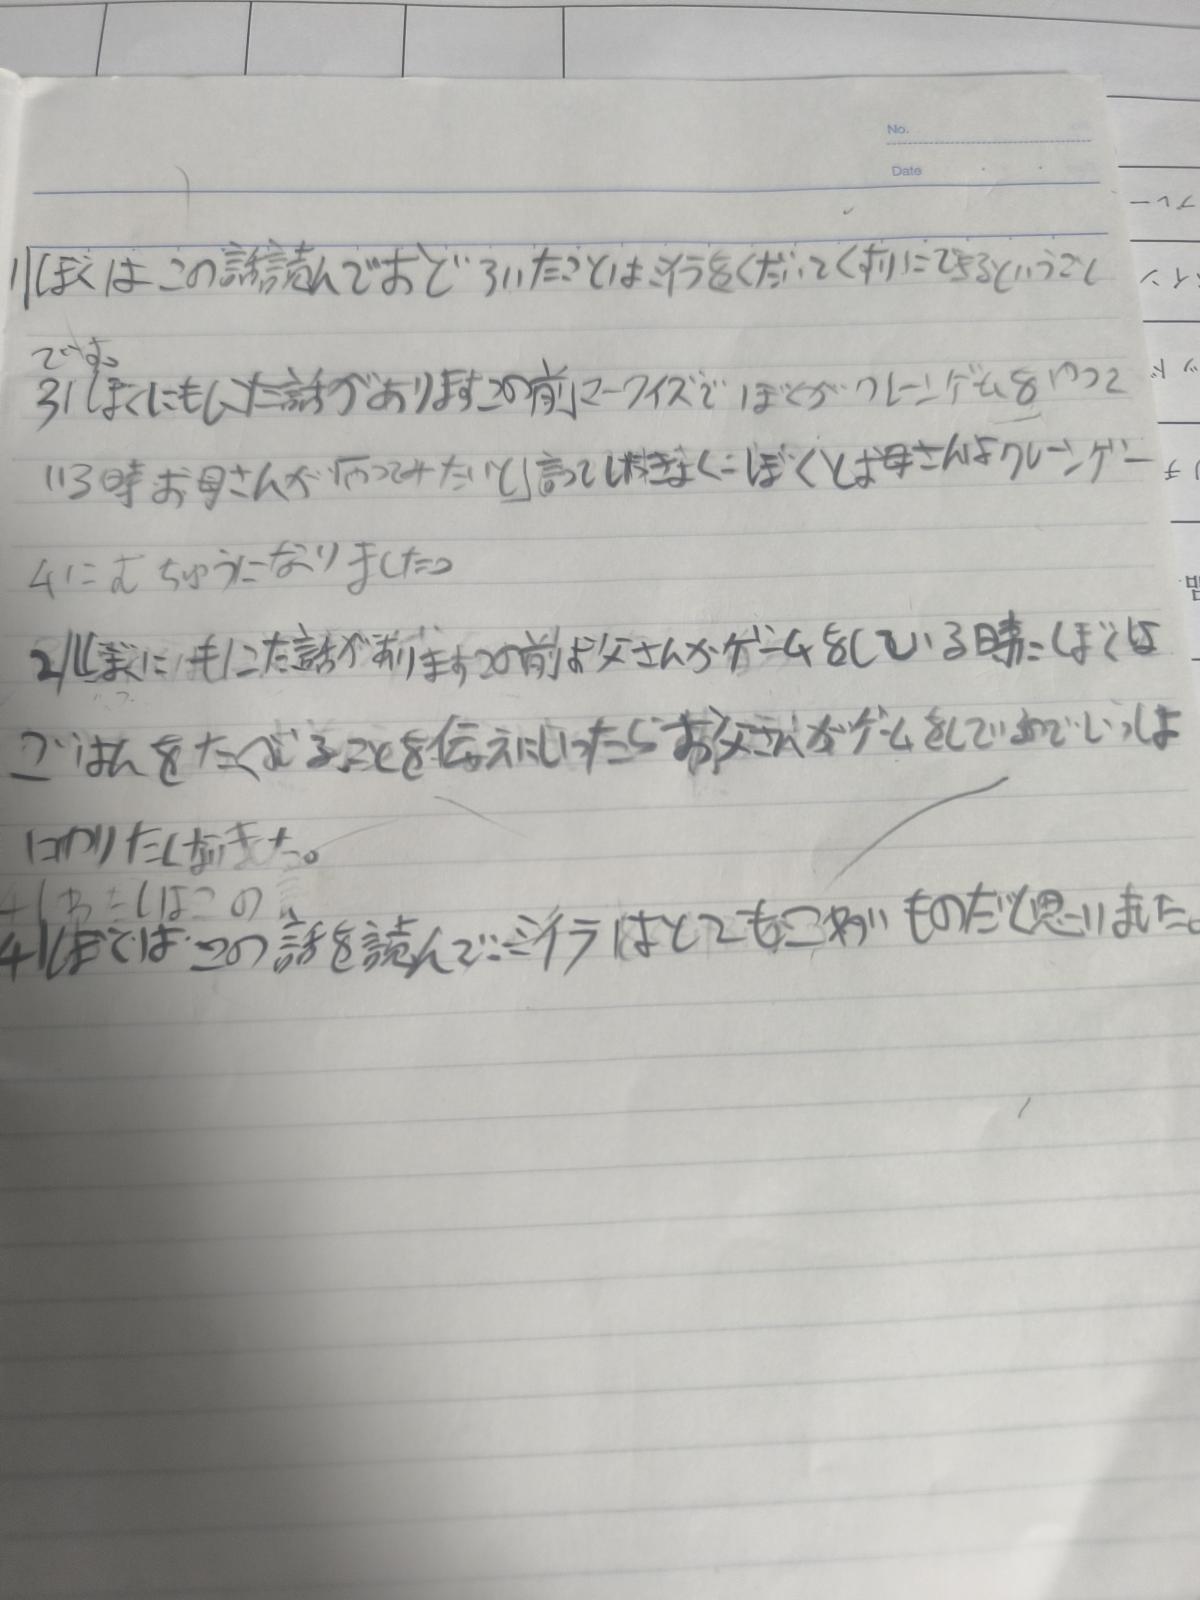 No.
Date
1 ぼくはこの話読んでおどろいたことはミイラをくだいてくすりにできるということ
です。
3 ぼくにもにた話がありますこの前マークイズでぼくがクレーンゲームをやって
いる時お母さんが「やってみたい」と言って
ぼくとお母さんはクレーンゲー
ムにむちゅうになりました。
2 ぼくにもにた話がありますこの前お父さんがゲームをしている時にぼくは
ごはんをたべることを伝えにいったらお父さんがゲームをして
4 わたしはこの
4 ぼくはこの話を読んでミイラはとてもこわいものだと思いました。